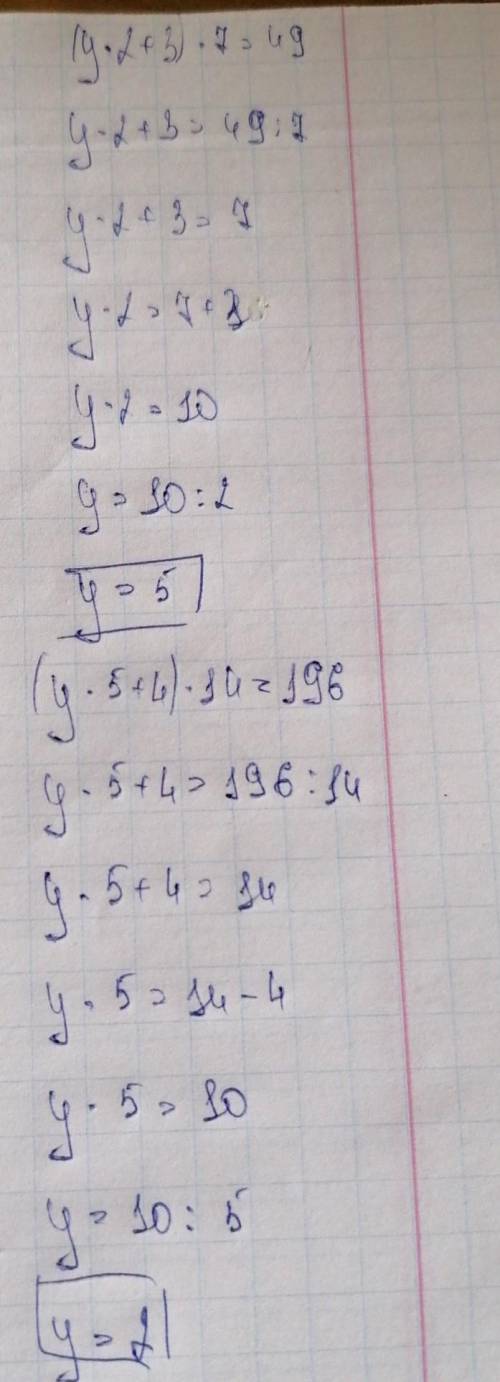 (y·2+3)·7=49
y·2+3=49:7
y·2+3=7
y·2=7+3
y·2=10
y=10:2
y=5
(y·5+4)·14=196
y·5+4=196:14
y·5+4=14
y·5=14-4
y·5=10
y=10:5
y=2